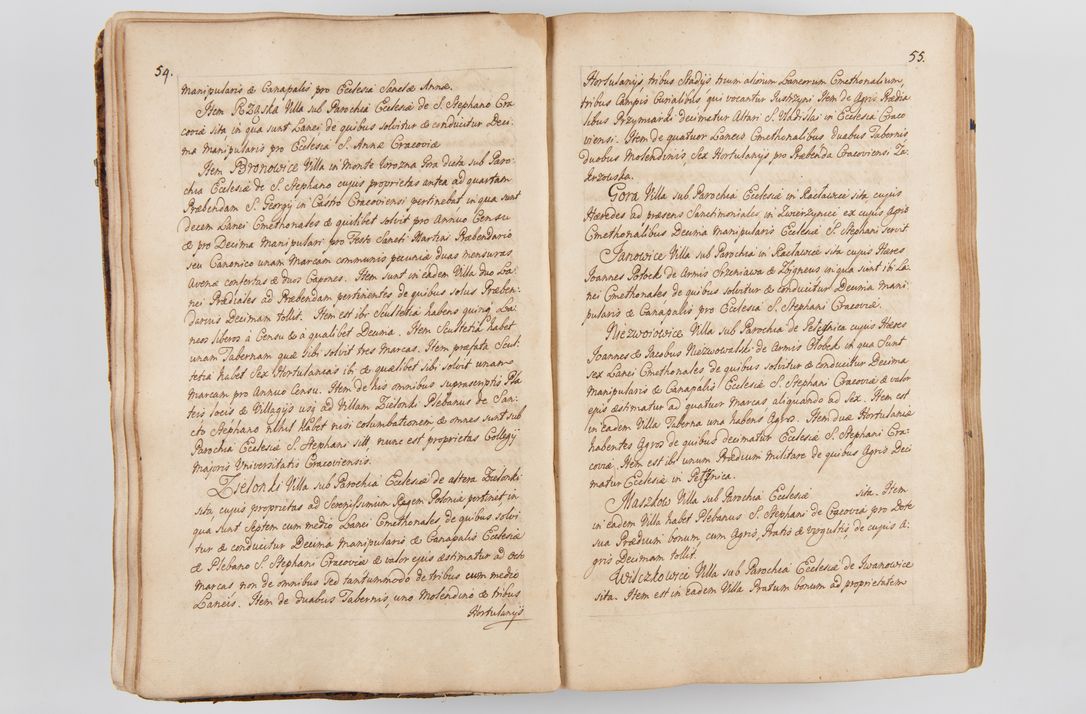 54.
manipularis & Canapalis pro Ecclesia Sanctæ Annæ.
Item Rząska Villa sub Parochia Ecclesiæ de S. Stephano Cra-
coviæ sita, in qua sunt Lanei de quibus solvitur & conducitur Deci-
ma Manipularis pro Ecclesia S. Annæ Cracoviæ
Item Bronowice Villa in Monte Grozna Gora dicta sub Paro-
chia Ecclesiæ de S. Stephano cuius proprietas antea ad quartam
Præbendam S. Georgij in Castro Cracoviensi pertinebat in qua sunt
decem Lanei Cmethonales & quilibet solvit pro Annuo Censu
& pro Decima Manipulari pro Festo Sancti Martini Præbendario
seu Canonico unam Marcam communis pecuniæ duas mensuras
Avenæ confertas & duos Capones. Item sunt in eadem Villa duo La-
nei Prædiales ad Præbendam pertinentes de quibus solus Præben-
darius Decimam tollit. Item est ibi Scultetia habens quinq La-
neos liberos à Censu & à qualibet Decima. Item Scultetia habet
unam Tabernam quæ sibi solvit tres Marcas. Item præfata Scul-
tetia habet Sex Hortulanias ibi & quælibet sibi solvit unam
Marcam pro Annuo Censu. Item de his omnibus suprascriptis Pla-
teis locis & Villagijs usq ad Villam Zielonki Plebanus de San-
cto Stephano nihil habet nisi columbationem & omnes sunt sub
Parochia Ecclesiæ S. Stephani sitt, nunc est proprietas Collegij
Majoris Universitatis Cracoviensis.
Zielonki Villa sub Parochia Ecclesiæ de altera Zielonki
sita, cuius proprietas ad Serenissimum Regem Poloniæ pertinet in
qua sunt Septem cum medio Lanei Cmethonales de quibus solvi
tur & conducitur Decima Manipularis & Canapalis Ecclesiæ
& Plebano S. Stephani Cracoviæ & valor ejus æstimatur ad Octo
Marcas non de omnibus sed tantummodo de tribus cum medio
Laneis. Item de duabus Tabernis, uno Molendino & tribus
Hortulanijs
55.
Hortulanijs, tribus Stadijs trium aliorum Laneorum Cmethonalium,
tribus Campis Curialibus qui vocantur Iustzyni Item de Agris Prædia
libus Przymiarki decimatur Altari S. Vladislai in Ecclesia Craco
viensi. Item de quatuor Laneis Cmethonalibus duabus Tabernis
duobus Molendinis Sex Hortulanijs pro Præbenda Cracoviensi Za-
krzowska.
Gora Villa sub Parochia Ecclesiæ in Racławice sita cuius
Hæredes ad præsens Sanctimoniales in Zwierzyniec ex cuius Agris
Cmethonalibus Decima Manipularis Ecclesiæ S. Stephani servit
Janowice Villa sub Parochia in Racławice sita cuius Hæres
Ioannes Potock de Armis Srzeniawa & Zbigneus in qua sunt ibi La-
nei Cmethonales de quibus solvitur & conducitur Decima Mani
pularis & Canapalis pro Ecclesia S. Stephani Cracoviæ.
Niezwoiowice Villa sub Parochia de Pełcznica cuius Hæres
Ioannes & Jacobus Niezwowski de Armis Ostock in qua Sunt
sex Lanei Cmethonales de quibus solvitur & conducitur Decima
Manipularis & Canapalis Ecclesiæ S. Stephani Cracoviæ & valor
ejus æstimatur ad quatuor Marcas aliquando ad Sex. Item est
in eadem Villa Taberna una habens Agros. Item duæ Hortulaniæ
habentes Agros de quibus decimatur Ecclesiæ S. Stephani Cra-
coviæ. Item est ibi unum Prædium militare de quibus Agris Deci
matur Ecclesiæ in Pełcznica.
Maszkow Villa sub Parochia Ecclesiæ sita. Item
in eadem Villa habet Plebanus S. Stephani de Cracovia pro Dote
sua Prædium bonum cum Agris, Pratis & virgultis, de cuius A-
gris Decimam tollit.
Wilczkowice Villa sub Parochia Ecclesiæ de Iwanowice
sita. Item est in eadem Villa Pratum bonum ad proprietatem